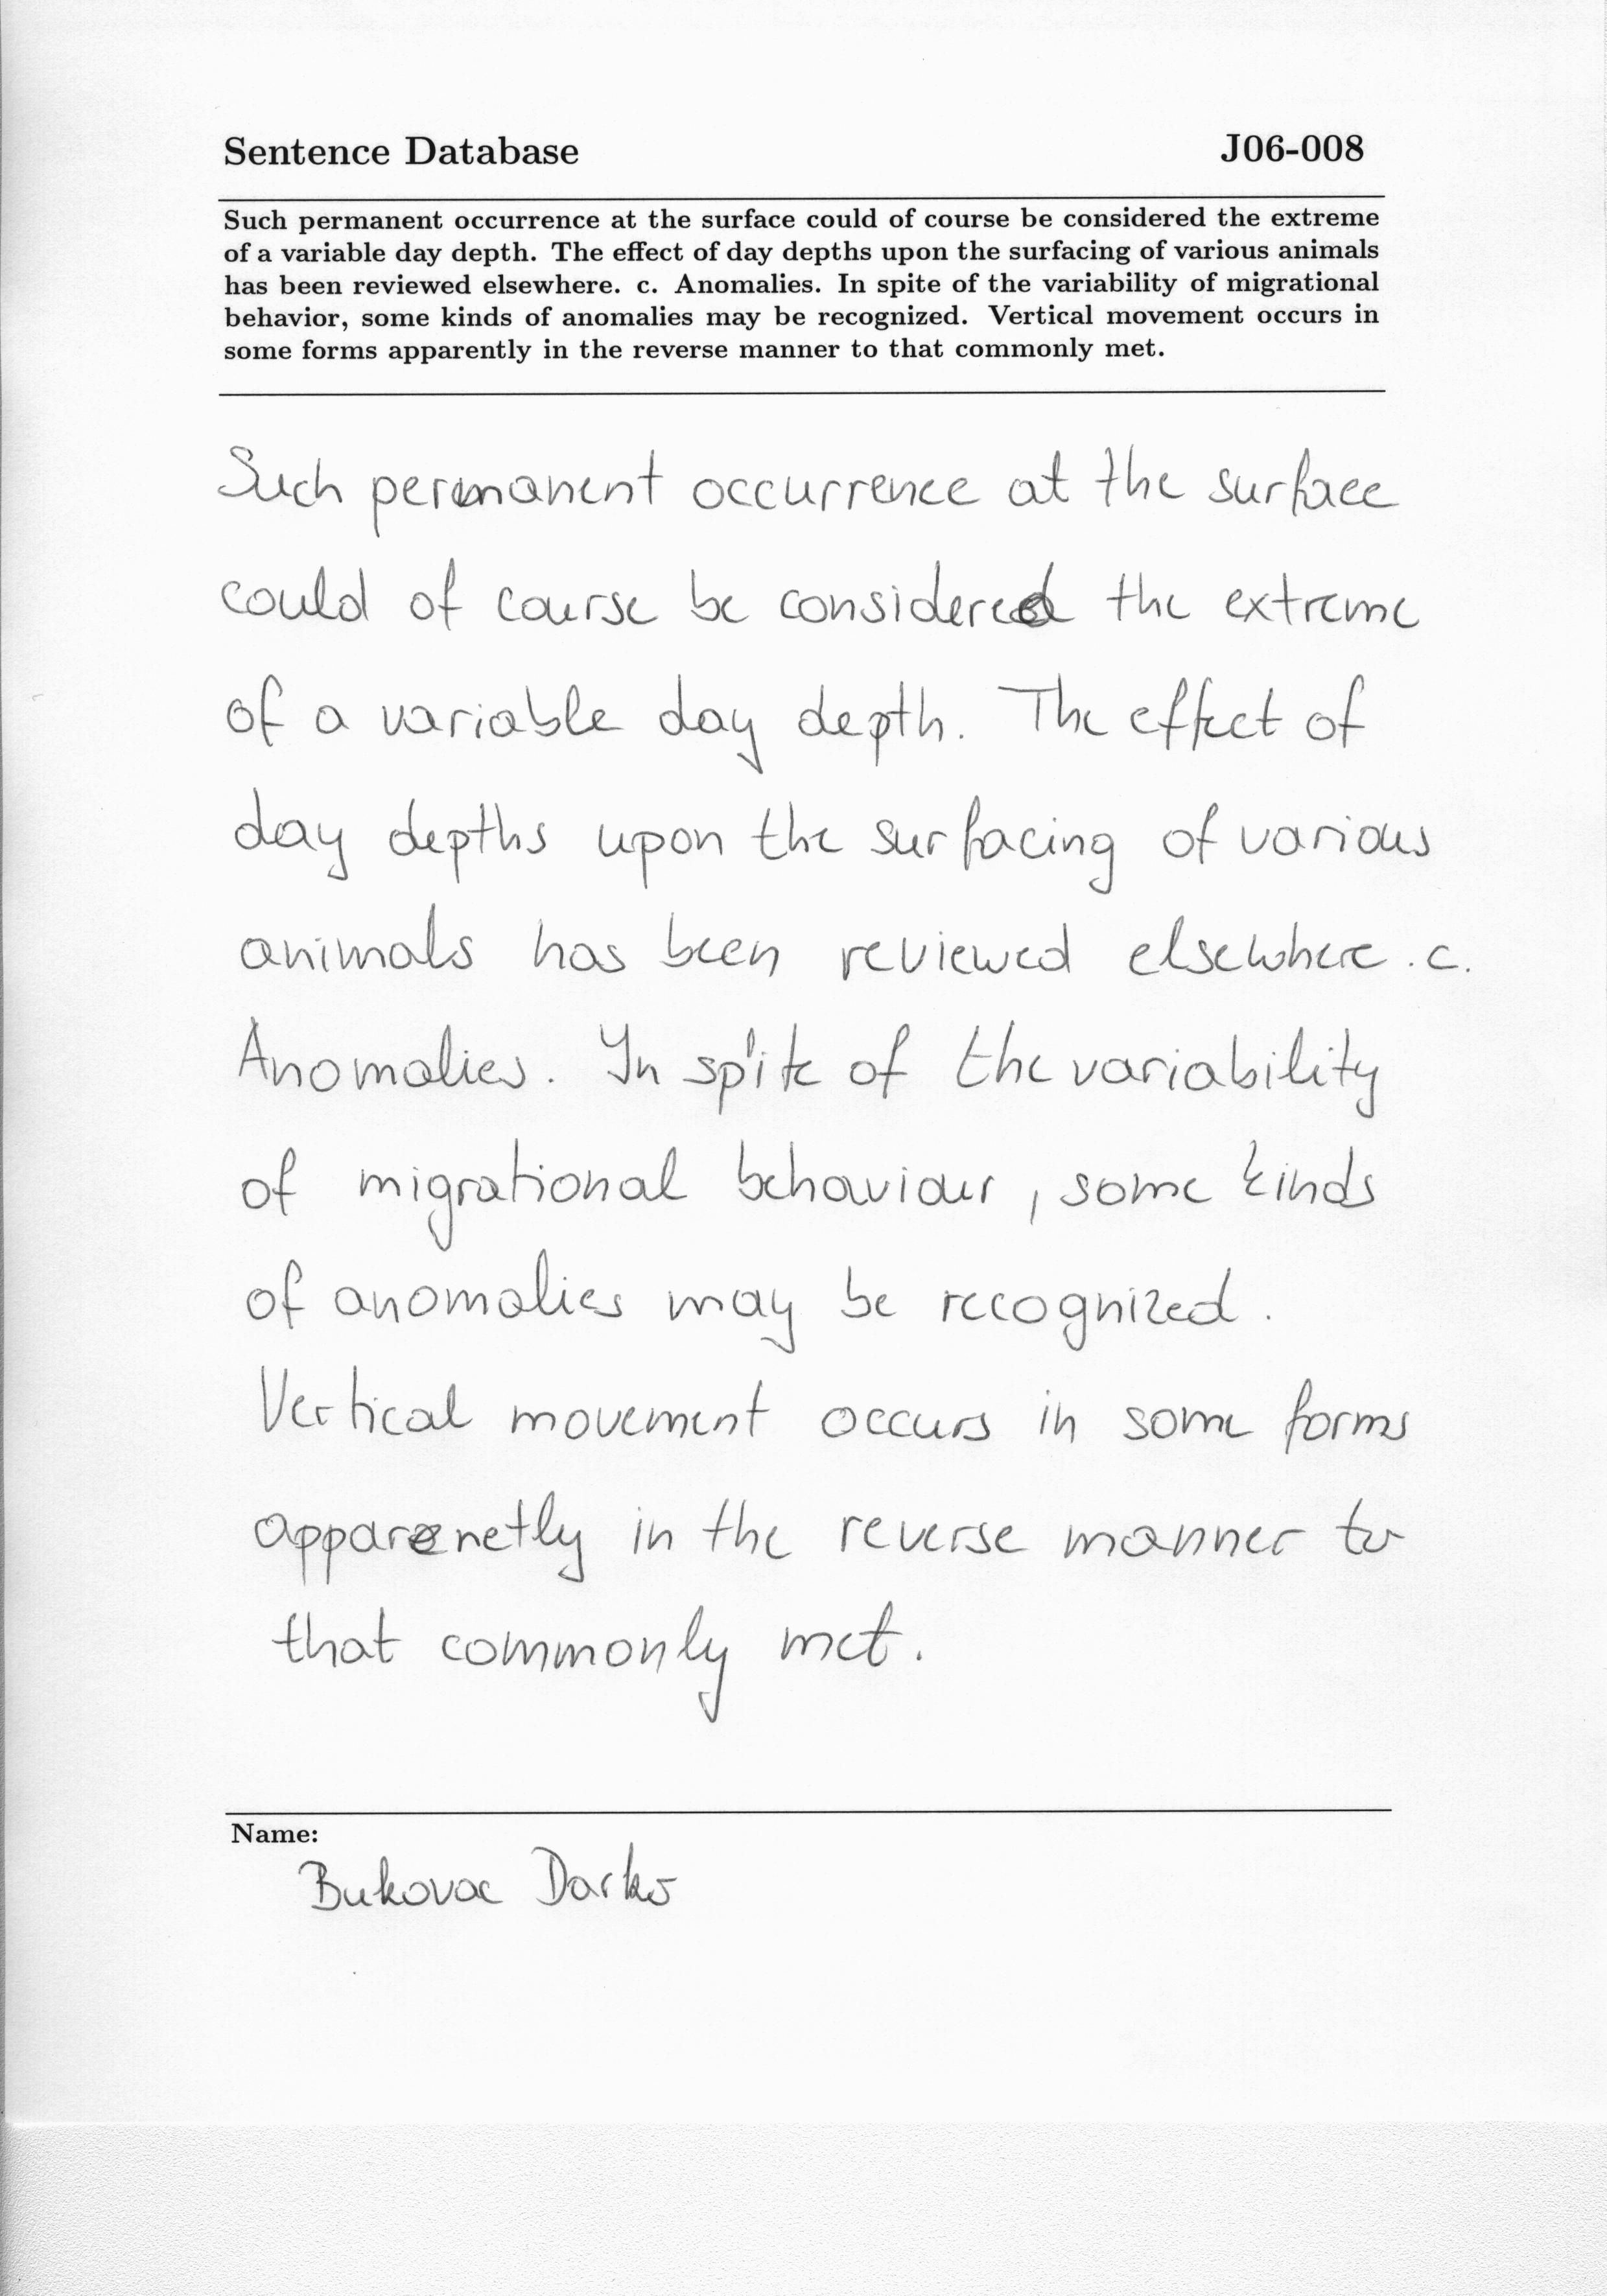 Sentence Database J06-008
Such permanent occurrence at the surface could of course be considered the extreme
of a variable day depth. The effect of day depths upon the surfacing of various animals
has been reviewed elsewhere. c. Anomalies. In spite of the variability of migrational
behavior, some kinds of anomalies may be recognized. Vertical movement occurs in
some forms apparently in the reverse manner to that commonly met.
Such permanent occurrence at the surface
could of course be considered the extreme
of a variable day depth. The effect of
day depths upon the surfacing of various
animals has been reviewed elsewhere. c.
Anomalies. In spite of the variability
of migrational behaviour, some kinds
of anomalies may be recognized.
Vertical movement occurs in some forms
apparenetly in the reverse manner to
that commonly met.
Name:
Bukovac Darko